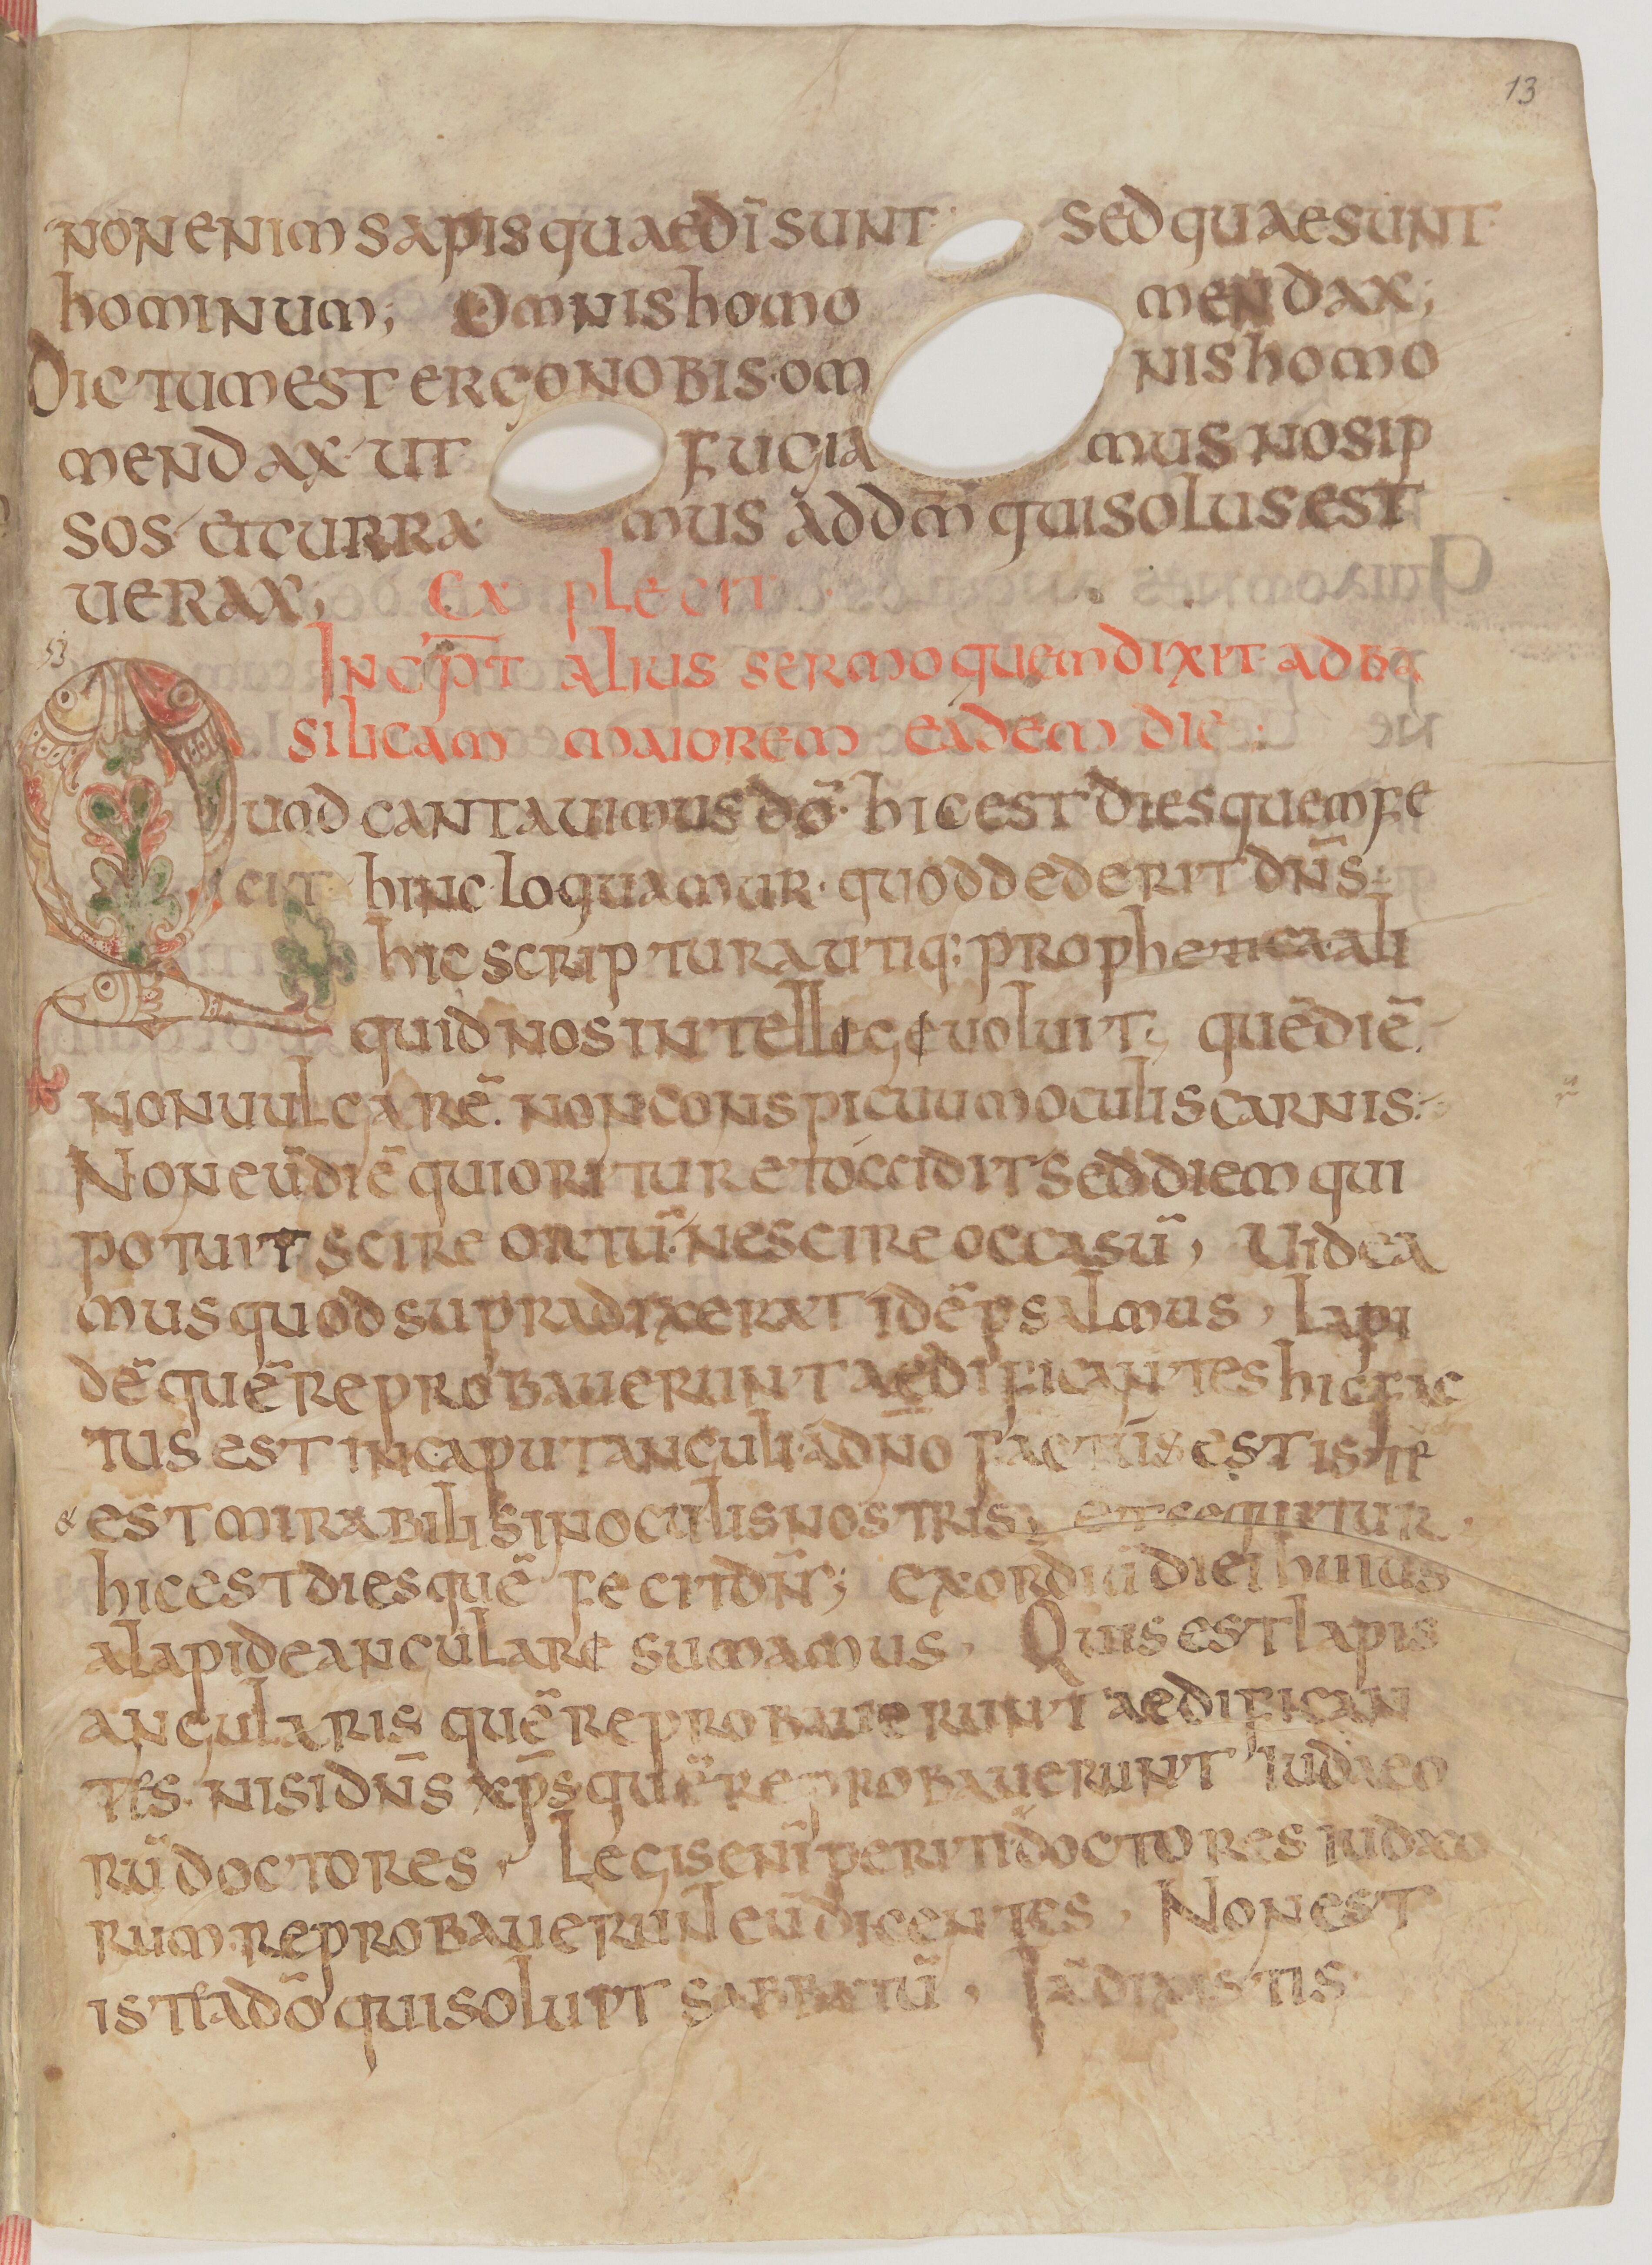 13
non enim sapis quae dī sunt· sed quae sunt
hominum; Omnis homo mendax;
Dictum est ergo nobis· om nis homo
mendax· ut fugia mus nosip
sos· et curra mus ad dm̄ qui solus est
uerax; Explecit
Incp̄t alius sermo quem dixit ad ba
silicam maiorem eadem die·
Quod cantauimus dō· hic est dies quem fe
cit hinc loquamur· quod dederit dn̄s·
hic scriptura utiq; prophetica· ali
quid nos intellege uoluit; quē diē
non uulgarē· non conspicuum oculis carnis·
Non eū diē qui oritur et occidit sed diem qui
potuit scire ortū· nescire occasū, Uidea
mus quod supra dixerat idē psalmus, lapi
dē quē reprobauerunt aedificantes hic fac
tus est in caput anguli· a dn̄o factus est iste
& est mirabilis in oculis nostris; et sequitur·
hic est dies quē fecit dn̄s; exordiū diei huius
a lapide angulare sumamus, Quis est lapis
angularis quē reprobauerunt aedifican
tes· nisi dn̄s xp̄s quē reprobauerunt iudaeo
rū doctores, Legis enī periti doctores iudaeo
rum· reprobauerunt eū dicentes, Non est
iste a dō qui soluit sabbatū, Iā dixistis